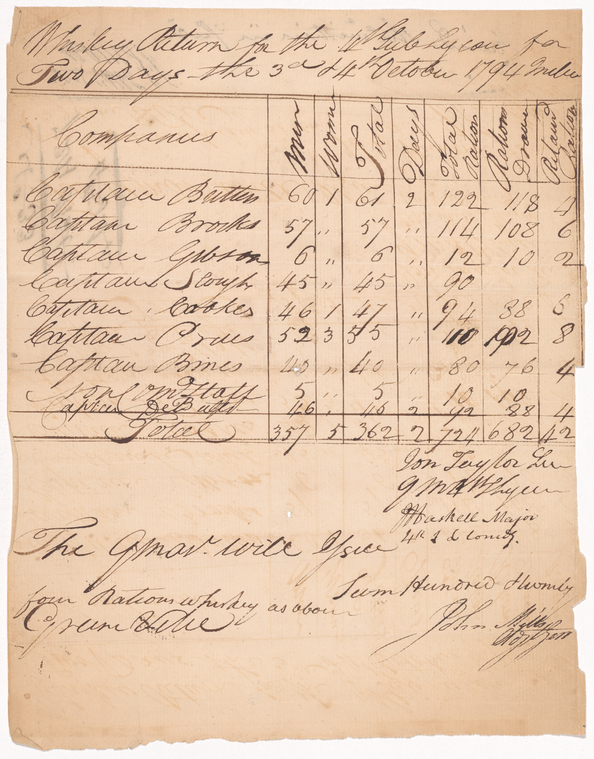 Whiskey Return for the 4th Sub Legion for
Two Days the 3d & 4th October 1794 Inclu
Companies Men Women Total Days Total Rations Rations Drawn Retain'd Rations
Captain Butler 60 1 61 2 122 118 4
Captain Brocks 57 " 57 " 114 108 6
Captain Gibson 6 " 6 " 12 10 2
Captain Slough 45 " 45 " 90
Captain Cookes 46 1 47 " 94 88 6
Captain 52 3 55 " 110 102 8
Captain Bines 40 " 40 " 80 76 4
Non Comd Staff 5 " 5 " 10 10
Captain De Butts 46 " 46 2 92 88 4
Total 357 5 362 2 724 682 42
Jon Taylor Lieu
Q M 4th S Legion
Haskell Major
4th S L Comdg.
The Q Mar. will Issue Seven Hundred & twenty
four Rations whiskey as above
Greenville John Mills